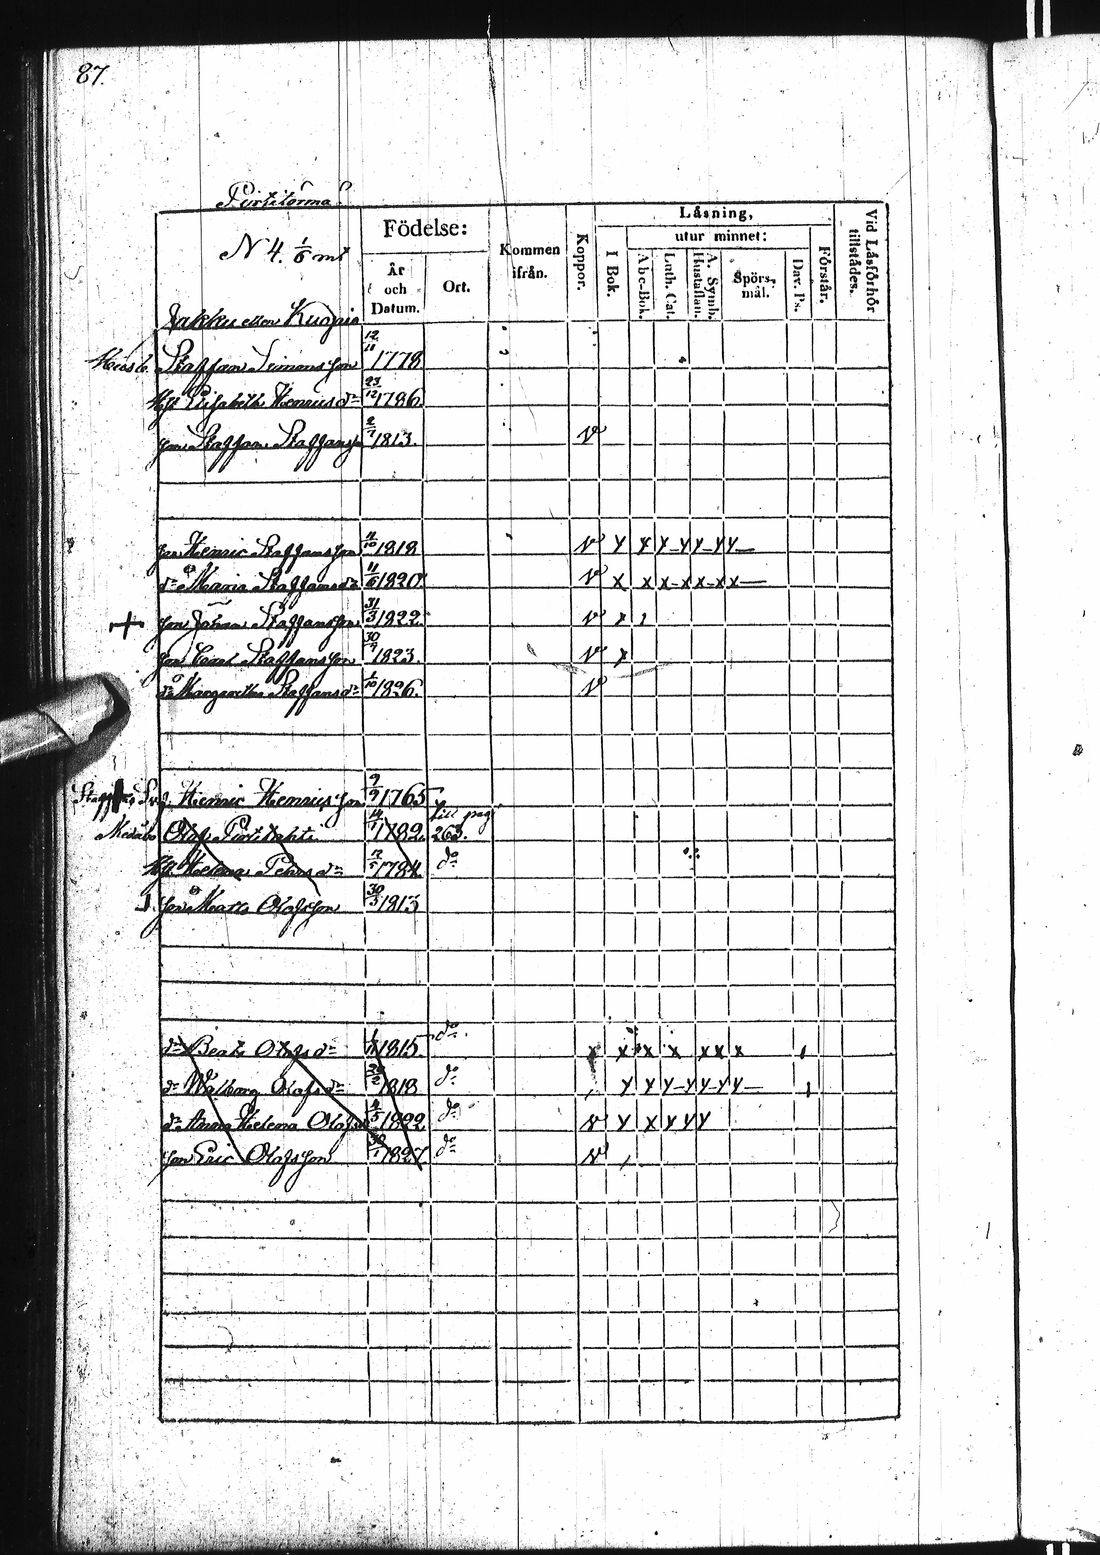 87.
Pirttitörmä
N 4. 1/6 mt
Födelse:
År och Datum.
Ort.
Kommen ifrån.
Koppor.
Läsning,
utur minnet:
I Bok.
Abc-Bok.
Luth. Cat.
A. Symb. Hustaflan.
Spörsmål.
Dav. Ps.
Förstår.
Vid Läsförhör tillstädes.
Jakku eller Kuopio
Staffan Simonsson 12/11 1778
Hu Elisabeth Henricsdr 23/12 1786
son Staffan Staffansson 2/7 1813. V
son Henric Staffansson 11/10 1818 V
dr Maria Staffansdr 11/6 1820 V
son Johan Staffansson 31/3 1822 V
son Carl Staffansson 30/9 1823. V
dr Margaretha Staffansdr 1/10 1826. V
Henric Henricsson 9/9 1765
till pag 263.
Olof Pirttilahti 14/1 1782
Hu Helena Petersdr 12/5 1784 do
son Matts Olofsson 30/3 1813
dr Beata Olofsdr 1815 do
dr Walborg Olofsdr 1818 do
dr Anna Helena Olofsdr 1822 do V
son Eric Olofsson 1827 do V